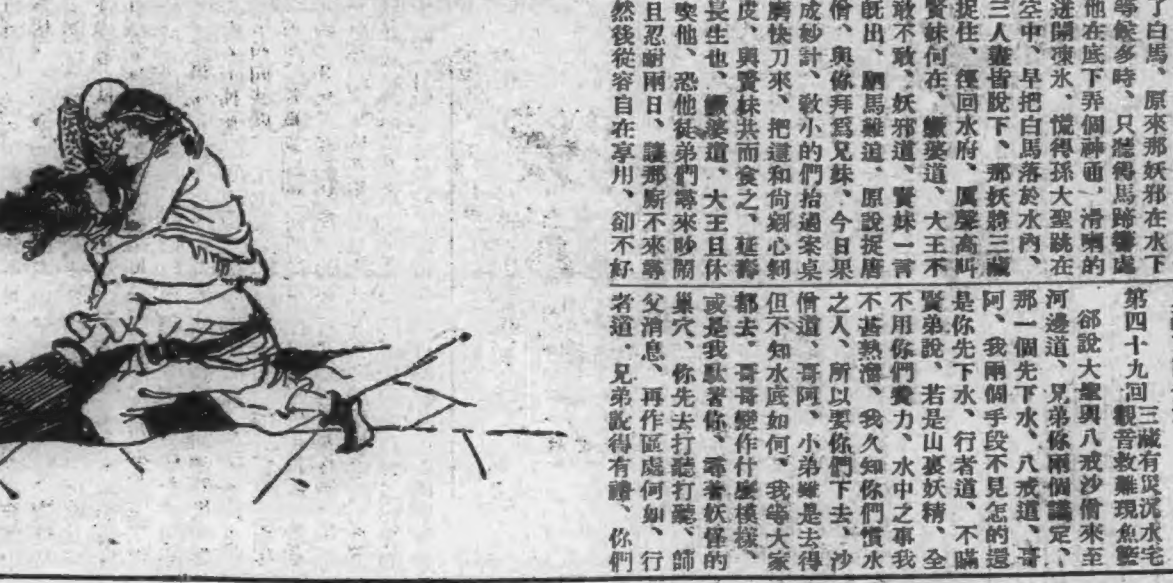 了白馬、原來那妖邪在水下
等候多時、只聽得馬蹄響處
他在底下弄個神通、滑喇的
迸開凍氷、慌得孫大聖跳在
空中、早把白馬落於水內、
三人盡皆脫下、那妖將三藏
捉住、徑回水府、厲聲高叫
賢妹何在、鱖婆道、大王不
敢不敢、妖邪道、賢妹一言
既出、駟馬難追、原說捉唐
僧、與你拜爲兄妹、今日果
成妙計、敎小的們抬過案桌
磨快刀來、把這和尙剜心剝
皮、與賢妹共而食之、延壽
長生也、鱖婆道、大王且休
喫他、恐他徒弟們尋來吵鬧
且忍耐兩日、讓那厮不來尋
然後從容自在享用、卻不好
第四十九回 三藏有災沉水宅
觀音救難現魚籃
郤說大聖與八戒沙僧來至
河邊道、兄弟你兩個議定、
那一個先下水、八戒道、哥
阿、我兩個手段不見怎的還
是你先下水、行者道、不瞞
賢弟說、若是山裏妖精、全
不用你們費力、水中之事我
不甚熟溜、我久知你們慣水
之人、所以要你們下去、沙
僧道、哥阿、小弟雖是去得
但不知水底如何、我等大家
都去、哥哥變作什麼模樣、
或是我馱著你、尋著妖怪的
巢穴、你先去打聽打聽、師
父消息、再作區處何如、行
者道、兄弟說得有禮、你們